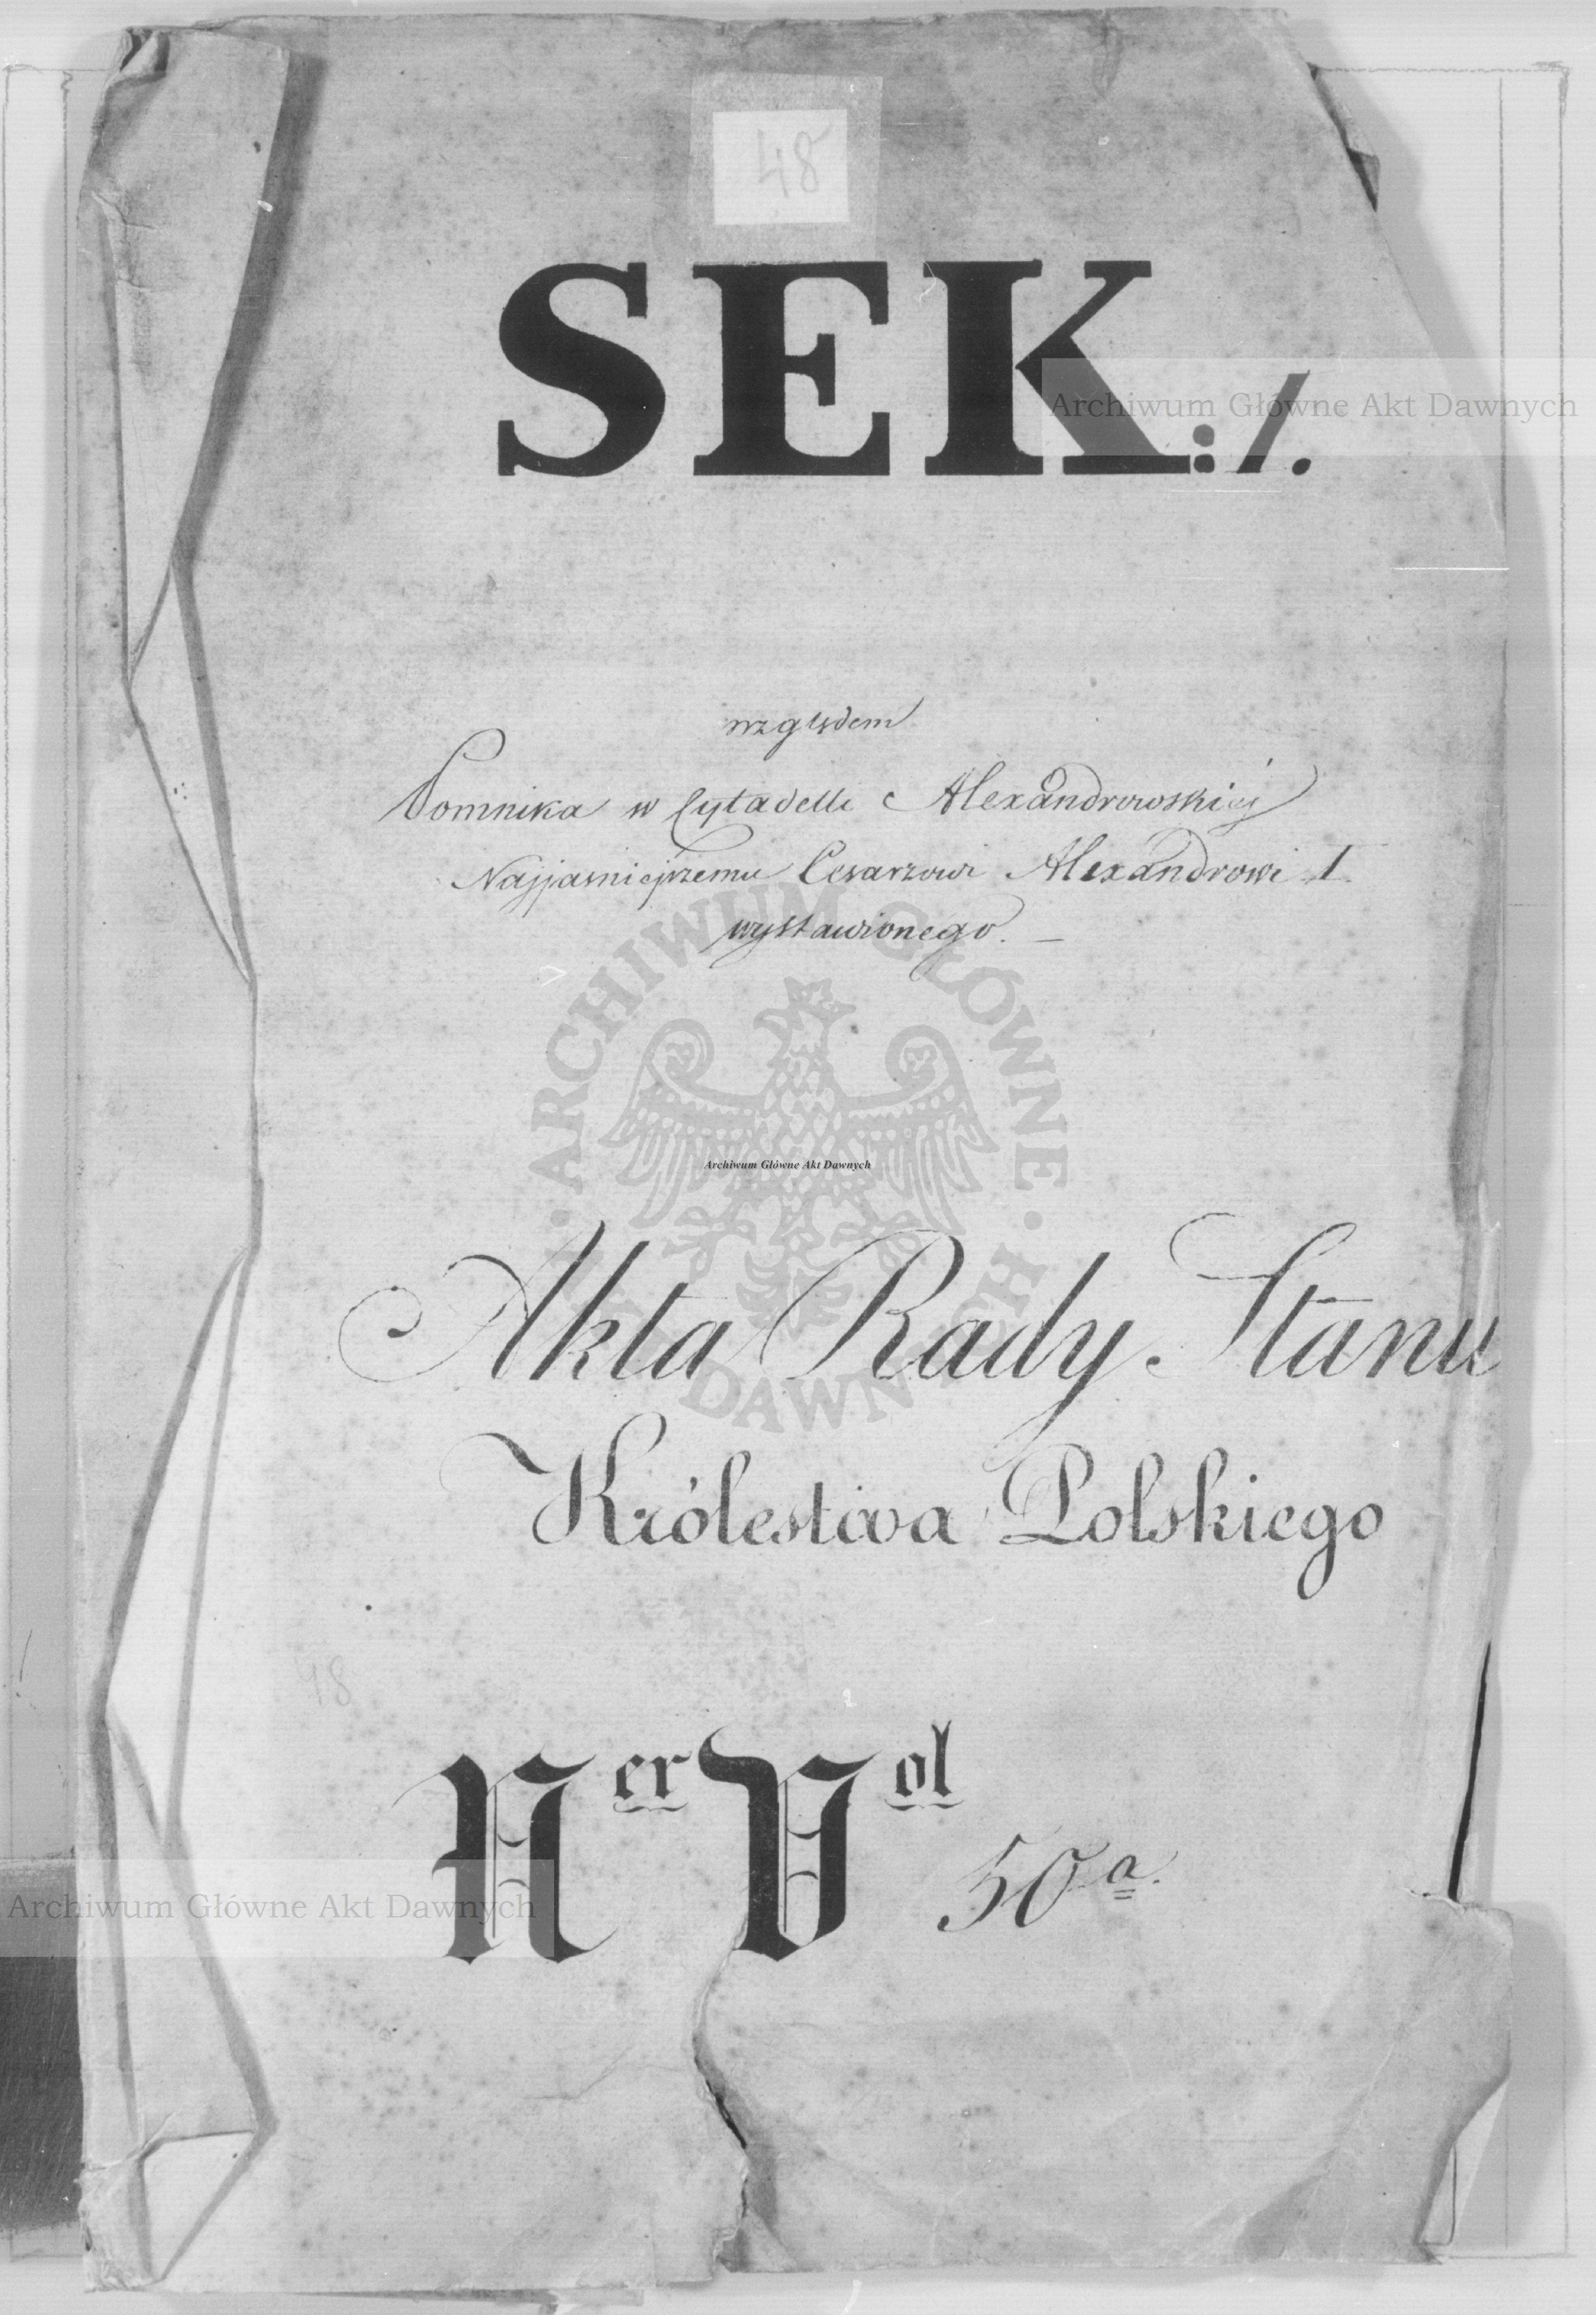 48
SEK:/.
Archiwum Główne Akt Dawnych
względem
Pomnika w Cytadelli Alexandrowskiéj
Najjaśniejszemu Cesarzowi Alexandrowi I.
wystawionego. —
ARCHIWUM GŁÓWNE
Archiwum Główne Akt Dawnych
AKT DAWNYCH
Akta Rady Stanu
Królestwa Polskiego
48
Ner Vol 50a.
Archiwum Główne Akt Dawnych